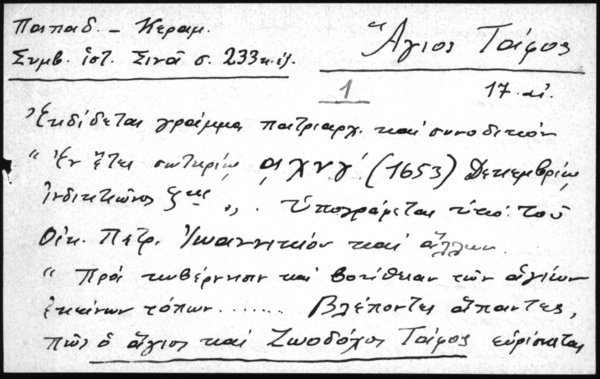 Παπαδ. – Κεραμ.
Συμβ. ἱστ. Σινᾶ σ. 233 κ.ἑξ.
Ἅγιος Τάφος
1
17 αἰ.
Ἐκδίδεται γράμμα πατριαρχ. καί συνοδικόν
"Ἐν ἔτει σωτηρίῳ ͵αχνγ΄ (1653) Δεκεμβρίῳ
ἰνδικτιῶνος ζης ". Ὑπογράφεται ὑπό τοῦ
Οἰκ. Πατρ. Ἰωαννικίου καί ἄλλων.
" Πρός κυβέρνησιν καί βοήθειαν τῶν ἁγίων
ἐκείνων τόπων ....... Βλέποντες ἅπαντες,
πῶς ὁ ἅγιος καί Ζωοδόχος Τάφος εὑρίσκεται